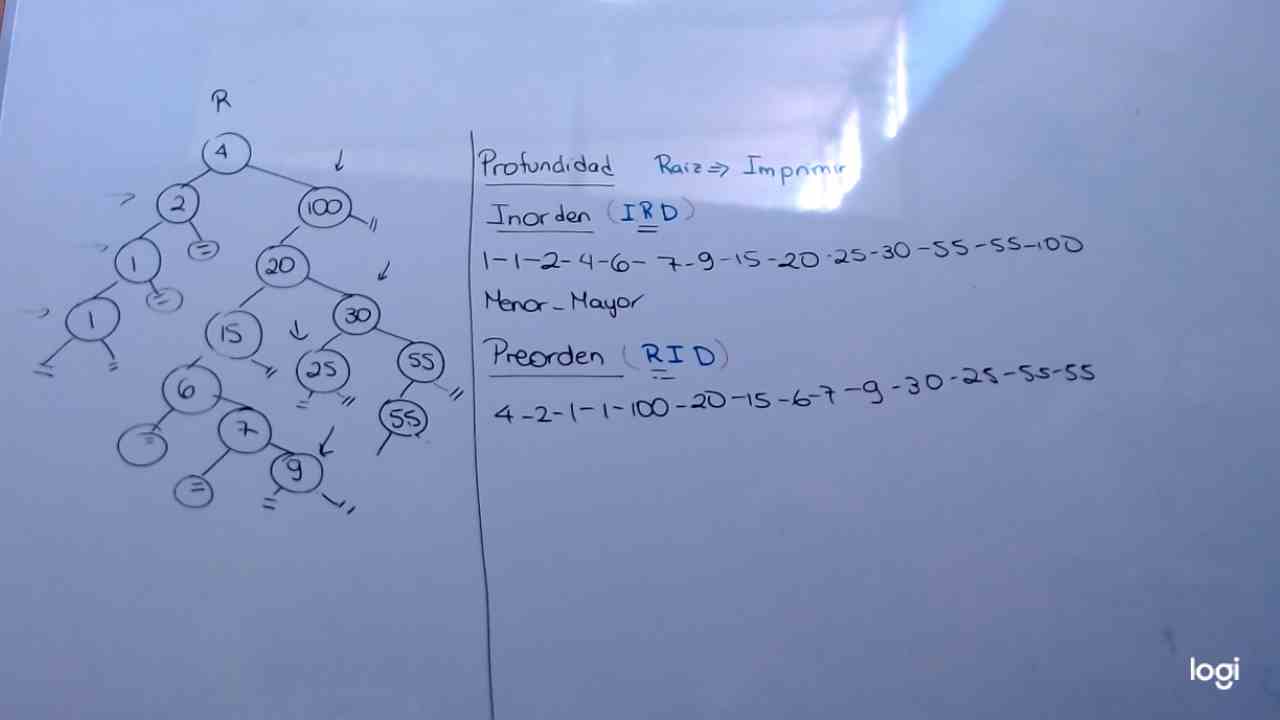 R
4
2
100
1
20
1
15
30
6
25
55
7
55
9
Profundidad Raiz => Imprimir
Inorden (IRD)
1-1-2-4-6-7-9-15-20-25-30-55-55-100
Menor - Mayor
Preorden (RID)
4-2-1-1-100-20-15-6-7-9-30-25-55-55
logi